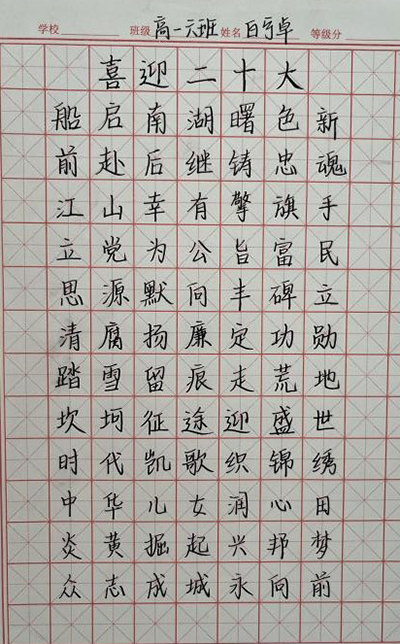 学校 班级 高一六班 姓名 白宇卓 等级分
喜迎二十大
船启南湖曙色新
前赴后继铸忠魂
江山幸有擎旗手
立党为公旨富民
思源默向丰碑立
清腐扬廉定功勋
踏雪留痕走荒地
坎坷征途迎盛世
时代凯歌织锦绣
中华儿女润心田
炎黄掘起兴邦梦
众志成城永向前